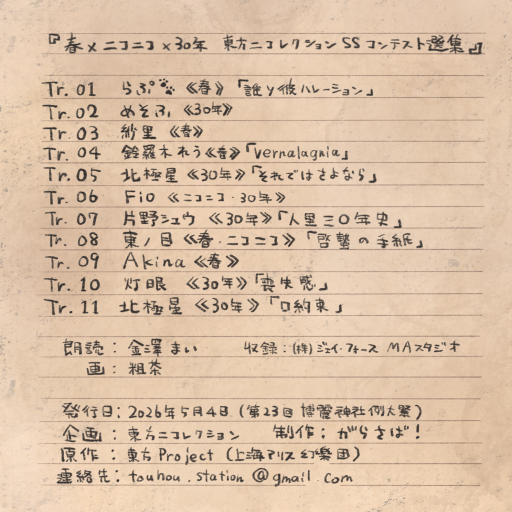 『春×ニコニコ×30年 東方ニコレクションSSコンテスト選集』
Tr. 01 らぷ🐾 《春》 「誰ソ彼ハレーション」
Tr. 02 めそふ 《30年》
Tr. 03 紗里 《春》
Tr. 04 鈴羅木れう《春》「vernalagnia」
Tr. 05 北極星 《30年》「それではさよなら」
Tr. 06 Fio 《ニコニコ・30年》
Tr. 07 片野シュウ 《30年》「人里三〇年史」
Tr. 08 東ノ目《春・ニコニコ》 「啓蟄の手紙」
Tr. 09 Akina 《春》
Tr. 10 灯眼 《30年》「喪失感」
Tr. 11 北極星 《30年》「口約束」
朗読：金澤まい 収録：(株)ジェイ・フォース MAスタジオ
画：粗茶
発行日：2026年5月4日 (第23回 博麗神社例大祭)
企画：東方ニコレクション 制作：がらさば！
原作：東方Project (上海アリス幻樂団)
連絡先：touhou.station@gmail.com